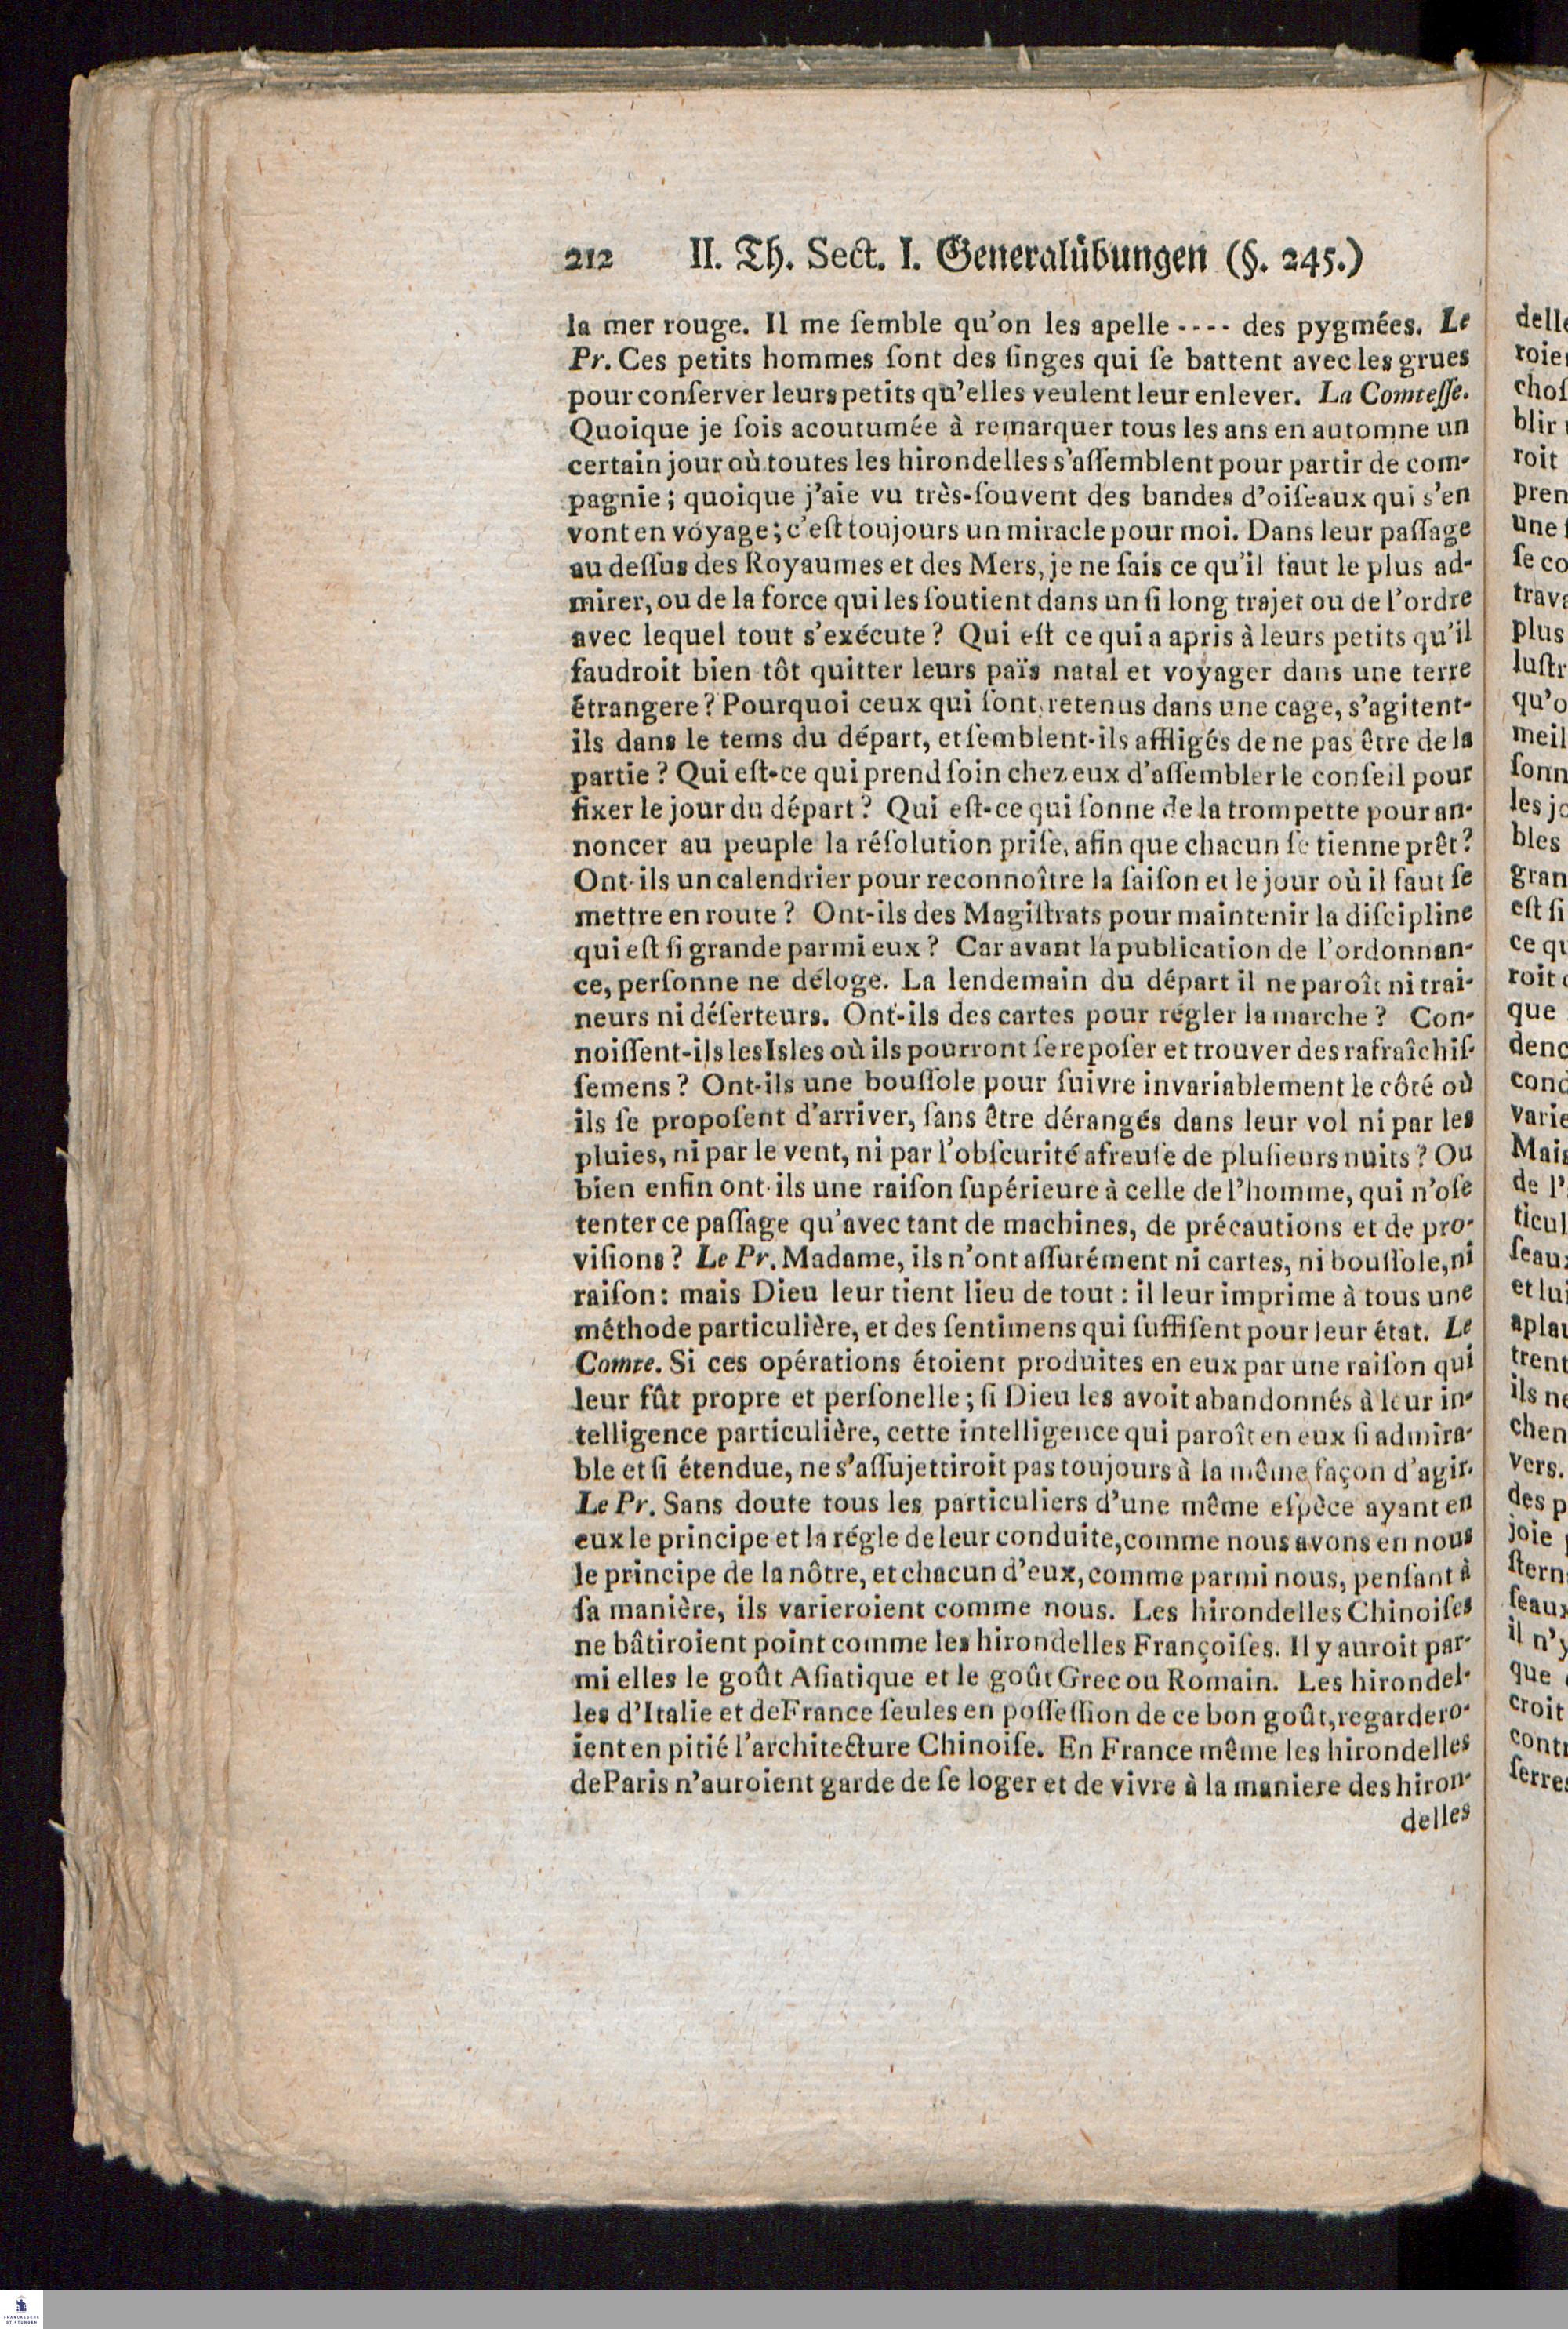 212 II. Th. Sect. I. Generalübungen (§. 245.)
la mer rouge. Il me ſemble qu'on les apelle ---- des pygmées. Le
Pr. Ces petits hommes ſont des ſinges qui ſe battent avec les grues
pour conſerver leurs petits qu'elles veulent leur enlever. La Comteſſe.
Quoique je ſois acoutumée à remarquer tous les ans en automne un
certain jour où toutes les hirondelles s'aſſemblent pour partir de com-
pagnie; quoique j'aie vu très-ſouvent des bandes d'oiſeaux qui s'en
vont en voyage; c'eſt toujours un miracle pour moi. Dans leur paſſage
au deſſus des Royaumes et des Mers, je ne ſais ce qu'il faut le plus ad-
mirer, ou de la force qui les ſoutient dans un ſi long trajet ou de l'ordre
avec lequel tout s'exécute? Qui eſt ce qui a apris à leurs petits qu'il
faudroit bien tôt quitter leurs païs natal et voyager dans une terre
étrangere? Pourquoi ceux qui ſont retenus dans une cage, s'agitent-
ils dans le tems du départ, et ſemblent-ils affligés de ne pas être de la
partie? Qui eſt-ce qui prend ſoin chez eux d'aſſembler le conſeil pour
fixer le jour du départ? Qui eſt-ce qui ſonne de la trompette pour an-
noncer au peuple la réſolution priſe, afin que chacun ſe tienne prêt?
Ont-ils un calendrier pour reconnoître la ſaiſon et le jour où il faut ſe
mettre en route? Ont-ils des Magiſtrats pour maintenir la diſcipline
qui eſt ſi grande parmi eux? Car avant la publication de l'ordonnan-
ce, perſonne ne déloge. La lendemain du départ il ne paroît ni trai-
neurs ni déſerteurs. Ont-ils des cartes pour régler la marche? Con-
noiſſent-ils les Isles où ils pourront ſe repoſer et trouver des rafraîchiſ-
ſemens? Ont-ils une bouſſole pour ſuivre invariablement le côté où
ils ſe propoſent d'arriver, ſans être dérangés dans leur vol ni par les
pluies, ni par le vent, ni par l'obſcurité afreuſe de pluſieurs nuits? Ou
bien enfin ont-ils une raiſon ſupérieure à celle de l'homme, qui n'oſe
tenter ce paſſage qu'avec tant de machines, de précautions et de pro-
viſions? Le Pr. Madame, ils n'ont aſſurément ni cartes, ni bouſſole, ni
raiſon: mais Dieu leur tient lieu de tout: il leur imprime à tous une
méthode particulière, et des ſentimens qui ſuffiſent pour leur état. Le
Comte. Si ces opérations étoient produites en eux par une raiſon qui
leur fût propre et perſonelle; ſi Dieu les avoit abandonnés à leur in-
telligence particulière, cette intelligence qui paroît en eux ſi admira-
ble et ſi étendue, ne s'aſſujettiroit pas toujours à la même façon d'agir.
Le Pr. Sans doute tous les particuliers d'une même eſpèce ayant en
eux le principe et la régle de leur conduite, comme nous avons en nous
le principe de la nôtre, et chacun d'eux, comme parmi nous, penſant à
ſa manière, ils varieroient comme nous. Les hirondelles Chinoiſes
ne bâtiroient point comme les hirondelles Françoiſes. Il y auroit par-
mi elles le goût Aſiatique et le goût Grec ou Romain. Les hirondel-
les d'Italie et de France ſeules en poſſeſſion de ce bon goût, regardero-
ient en pitié l'architecture Chinoiſe. En France même les hirondelles
de Paris n'auroient garde de ſe loger et de vivre à la maniere des hiron-
delles
delle
roie
choſ
blir
roit
pren
une
ſe co
trava
plus
luſtr
qu'o
meil
ſonn
les jo
bles
gran
eſt ſi
ce qu
roit
que
denc
cond
varie
Mais
de l'
ticul
ſeau
et lui
aplau
trent
ils ne
chen
vers.
des p
joie
ſtern
ſeaux
il n'y
que
croit
contr
ſerres
FRANCKESCHE
STIFTUNGEN